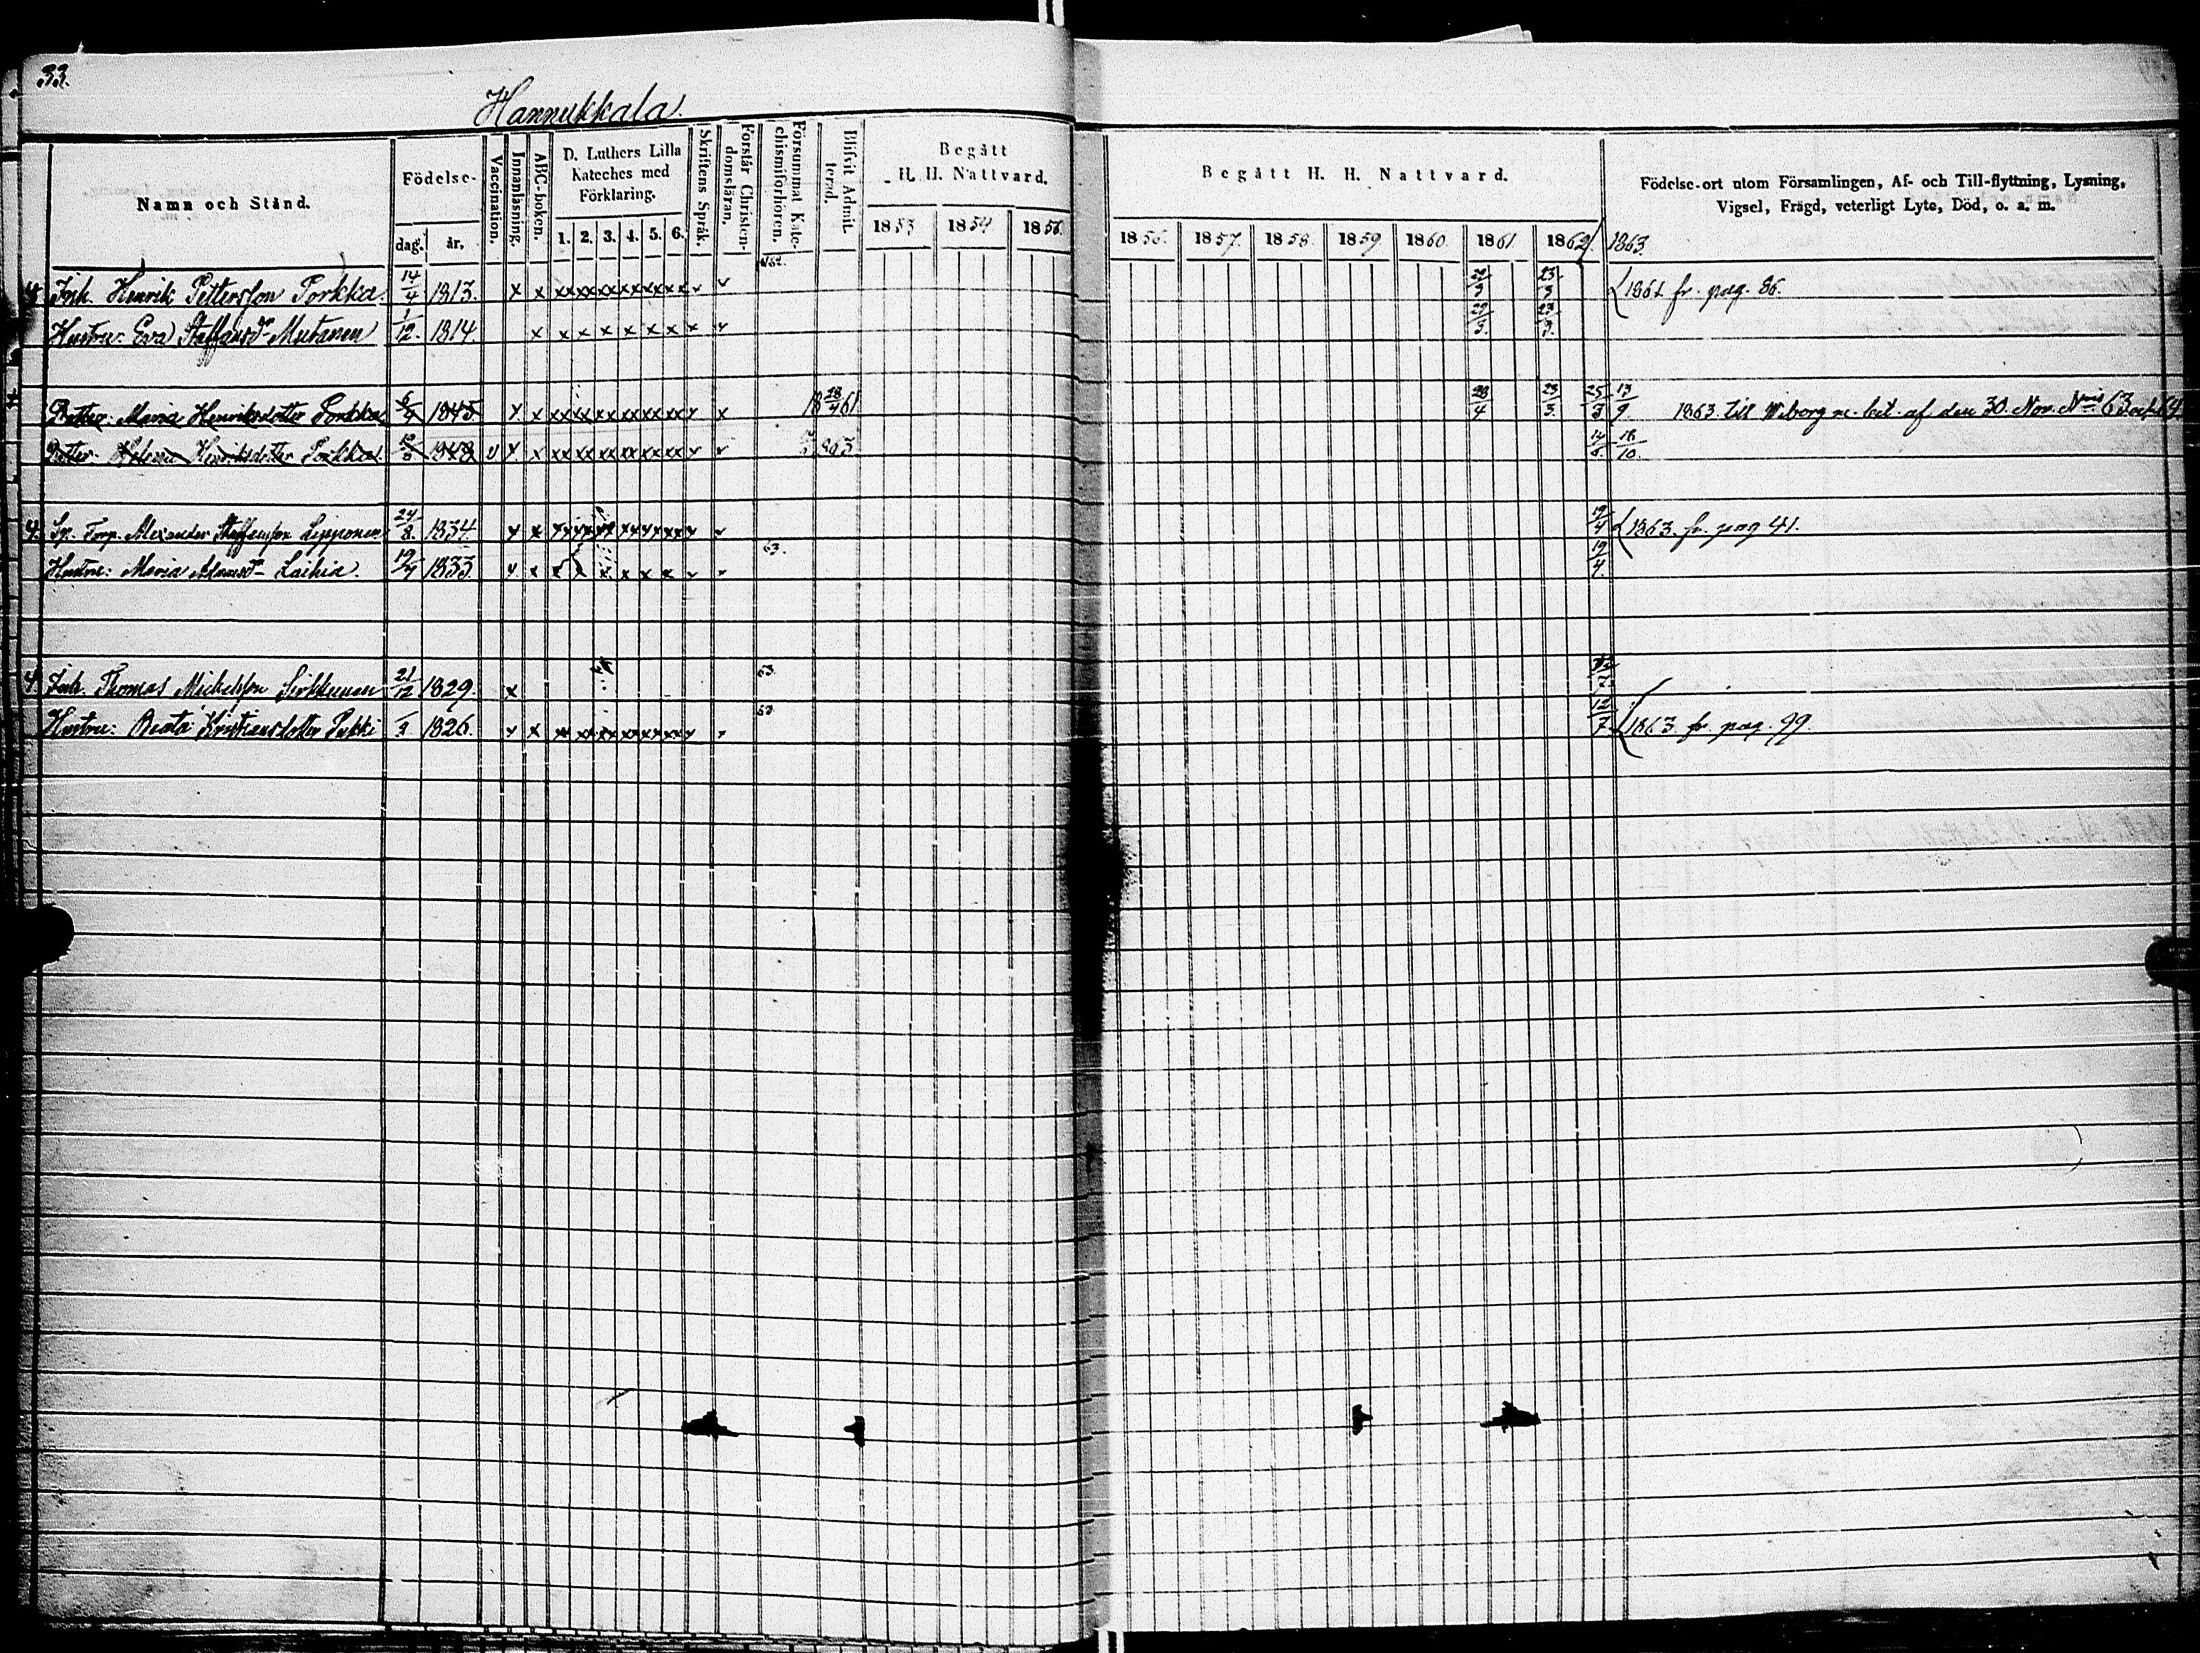 33.
Hannukkala.
Namn och Stånd.
Födelse-
dag. år.
Vaccination.
Innanläsning.
ABC-boken.
D. Luthers Lilla
Kateches med
Förklaring.
1. 2. 3. 4. 5. 6.
Skriftens Språk.
Förstår Christen-
domsläran.
Försummat Kate-
chismiförhören.
Blifvit Admit-
terad.
Begått
H. H. Nattvard.
1853 1854 1855
Begått H. H. Nattvard.
1856. 1857. 1858. 1859 1860 1861 1862. 1863.
Födelse-ort utom Församlingen, Af- och Till-flyttning, Lysning,
Vigsel, Frägd, veterligt Lyte, Död, o. a. m.
4 Inh. Henrik Pettersson Porkka. 14/4 1813. x x xx xx xx xx xx xx 22/3 23/3 1861 fr. pag. 86.
Hustru: Eva Staffansdr Mutanen 1/12. 1814. x x x x x x x 22/3. 23/3.
Dotter: Maria Henriksdotter Porkka 6/4 1845 x x xx xx xx xx xx xx x 18 28/4 61 28/4 23/3. 25/3 13/9. 1863. till Wiborg af den 30. Nov. 63
Dotter: Helena Henriksdotter Porkka 1848 v x x xx xx xx xx xx xx 863 14 18/10.
4. Alexander Staffansson Lipponen 24/8. 1834. x x 19/4 1863. fr. pag 41.
Hustru: Maria Adamsdr Laihia. 19/4 1833. x x x x x x 63. 19/4.
4. Inh. Thomas Michelsson Sirkkunen 21/12 1829. x 63.
Hustru: Beata Kristiansdotter Pukki 1826. x x xx xx xx xx xx 12/7. 1863 fr. pag. 99.